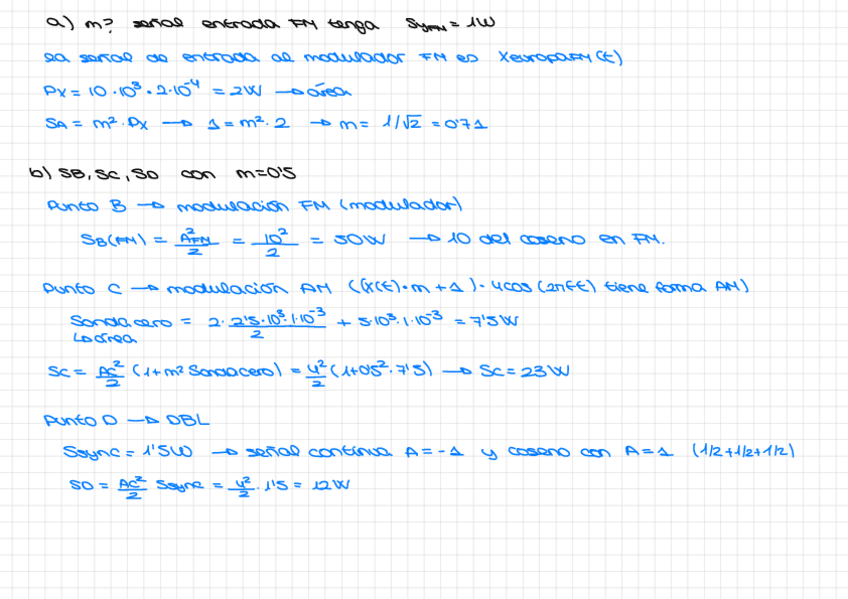 a) m? señal entrada FM tenga S_yFM = 1W
la señal de entrada al modulador FM es XeuropaFM(t)
Px = 10·10³·2·10⁻⁴ = 2W → área
SA = m²·Px → 1 = m²·2 → m = 1/√2 = 0'71
b) SB, SC, SD con m=0'5
Punto B → modulación FM (modulador)
SB(FM) = A²FM/2 = 10²/2 = 50W → 10 del coseno en FM.
Punto C → modulación AM ((x(t)·m+1)·4cos(2πft) tiene forma AM)
Sondacero = 2·2'5·10³·1·10⁻³/2 + 5·10³·1·10⁻³ = 7'5W
↳ área
SC = Ac²/2 (1+m² Sondacero) = 4²/2 (1+0'5²·7'5) → SC = 23W
Punto D → DBL
Ssync = 1'5W → señal continua A=-1 y coseno con A=1 (1/2+1/2+1/2)
SD = Ac²/2 Ssync = 4²/2 · 1'5 = 12W